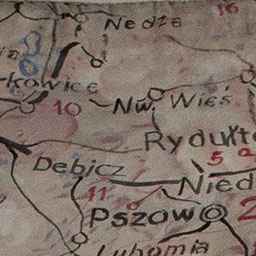 Nedze
16
kowice
10
Nw. Wieś
Rydułto
5
Debicz
11
Nied
Pszow
2
Lubomia